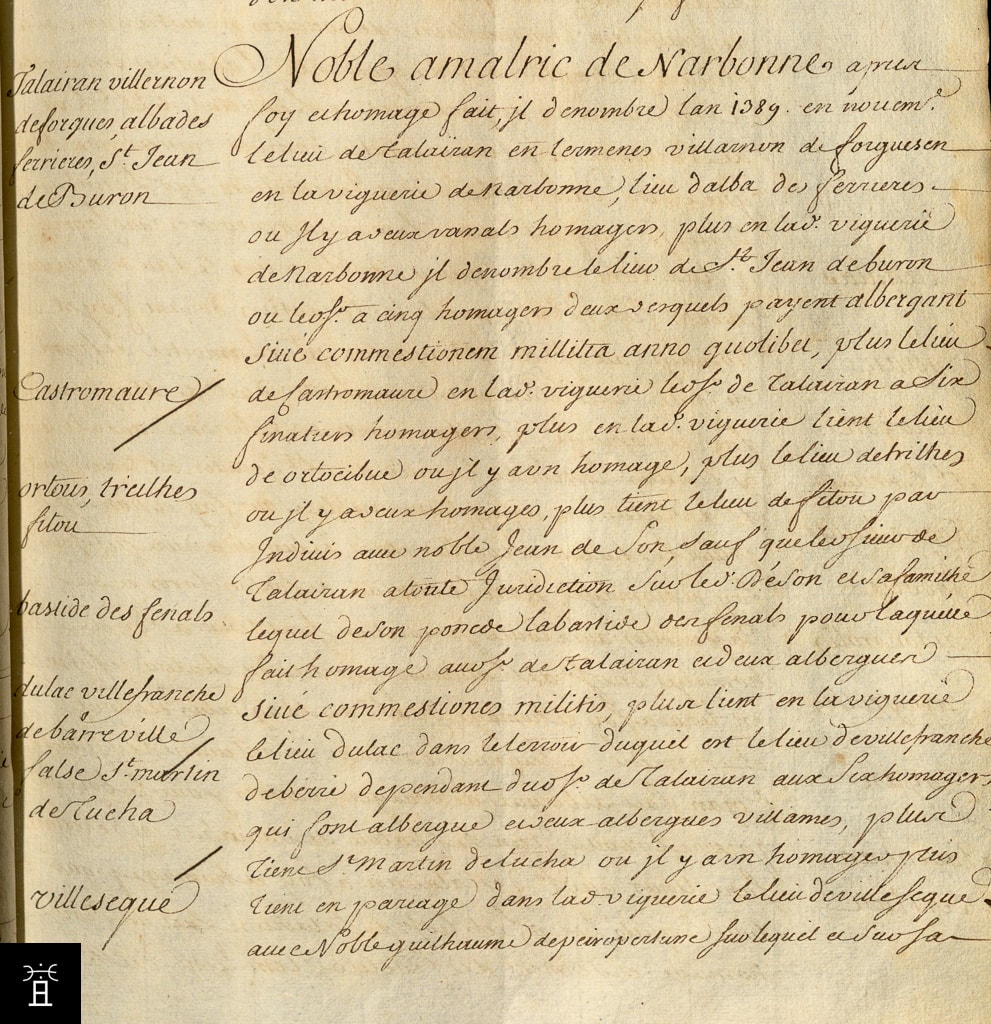 Noble amalric de Narbonne apres
foy et homage fait, jl denombre lan 1389. en novem.e
le lieu de Talairan en termenes villarnon de forguesen
en la viguerie de Narbonne, lieu dalba des ferrieres
ou jl y a deux vanals homagers, plus en lad. viguerie
de Narbonne jl denombre le lieu de St. Jean de buron
ou led sr. a cinq homagers deux desquels payent albergant
sivé commestionem millitia anno quolibet, plus le lieu
de Castromaure en lad. viguerie led sr. de Talairan a Six
homagers, plus en lad. viguerie tient le lieu
de ortocibue ou jl y a vn homage, plus le lieu de trilhes
ou jl y a deux homages, plus tient le lieu de fitou par
Indivis avec noble Jean de Son, Sauf que led sieur de
Talairan a toute Juridiction Sur led. De Son et sa familhe
lequel de Son la bastide des fenals pour laquelle
fait homage aud sr. de Talairan et deux albergues
sivé commestiones militis, plus tient en la viguerie
le lieu dulac dans le terroir duquel est le lieu de villefranche
de berre dependant dud sr. de Talairan aux Six homagers
qui font albergue et deux albergues villames, plus
tient St. Martin de tucha ou jl y a vn homager plus
tient en pareage dans lad. viguerie le lieu de villeseque
avec Noble guilhaume de peiropertuse sur lequel et sur sa
Talairan villernon
de forques, albades
ferrieres, St. Jean
de Buron
Castromaure
ortous, treilhes
fitou
bastide des fenals
dulac villefranche
de barreville
false St. martin
de Tucha
villeseque